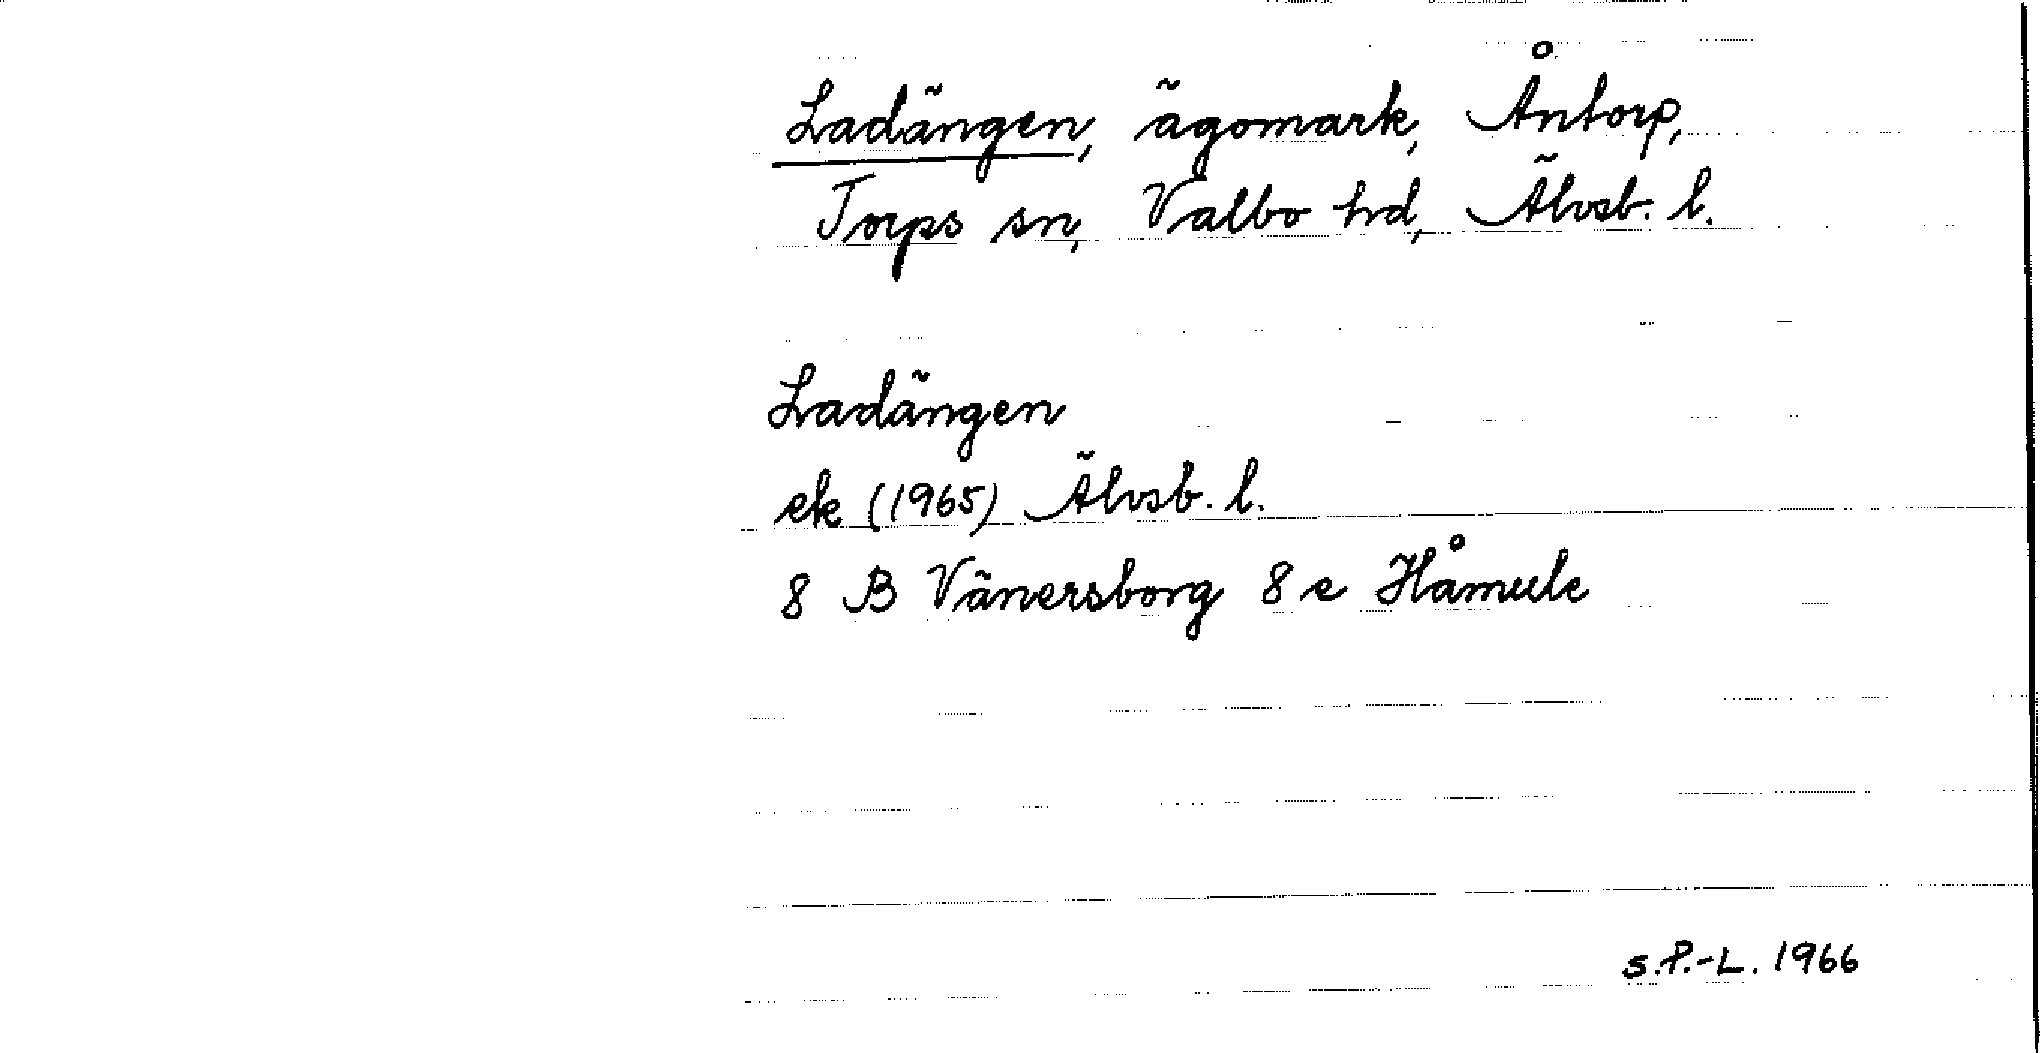 Ladängen, ägomark, Åntorp,
Torps sn, Valbo hd, Älvsb. l.
Ladängen
ek (1965) Älvsb. l.
8 B Vänersborg 8 e Håmule
S.P.-L. 1966